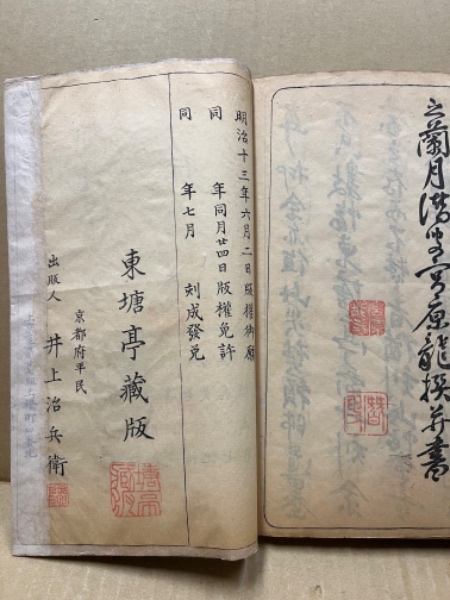 之蘭月潜叟宮原龍撰并書
明治十三年六月二日版權御願
同 年同月廿四日版權免許
同 年七月 刻成發兌
東塘亭藏版
京都府平民
出版人 井上治兵衛